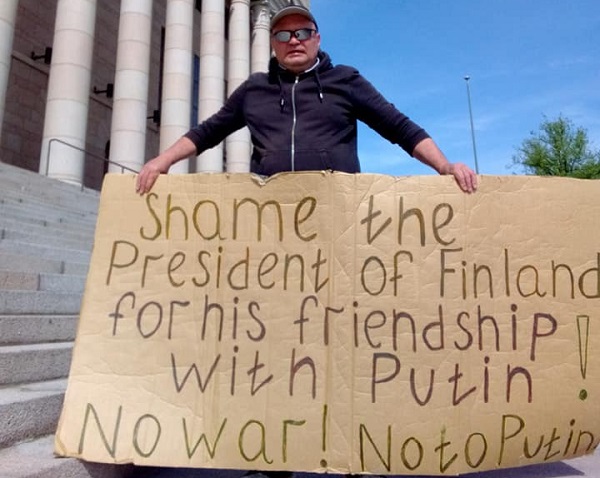 Shame the
President of Finland
for his friendship!
with Putin
No war! No to Putin